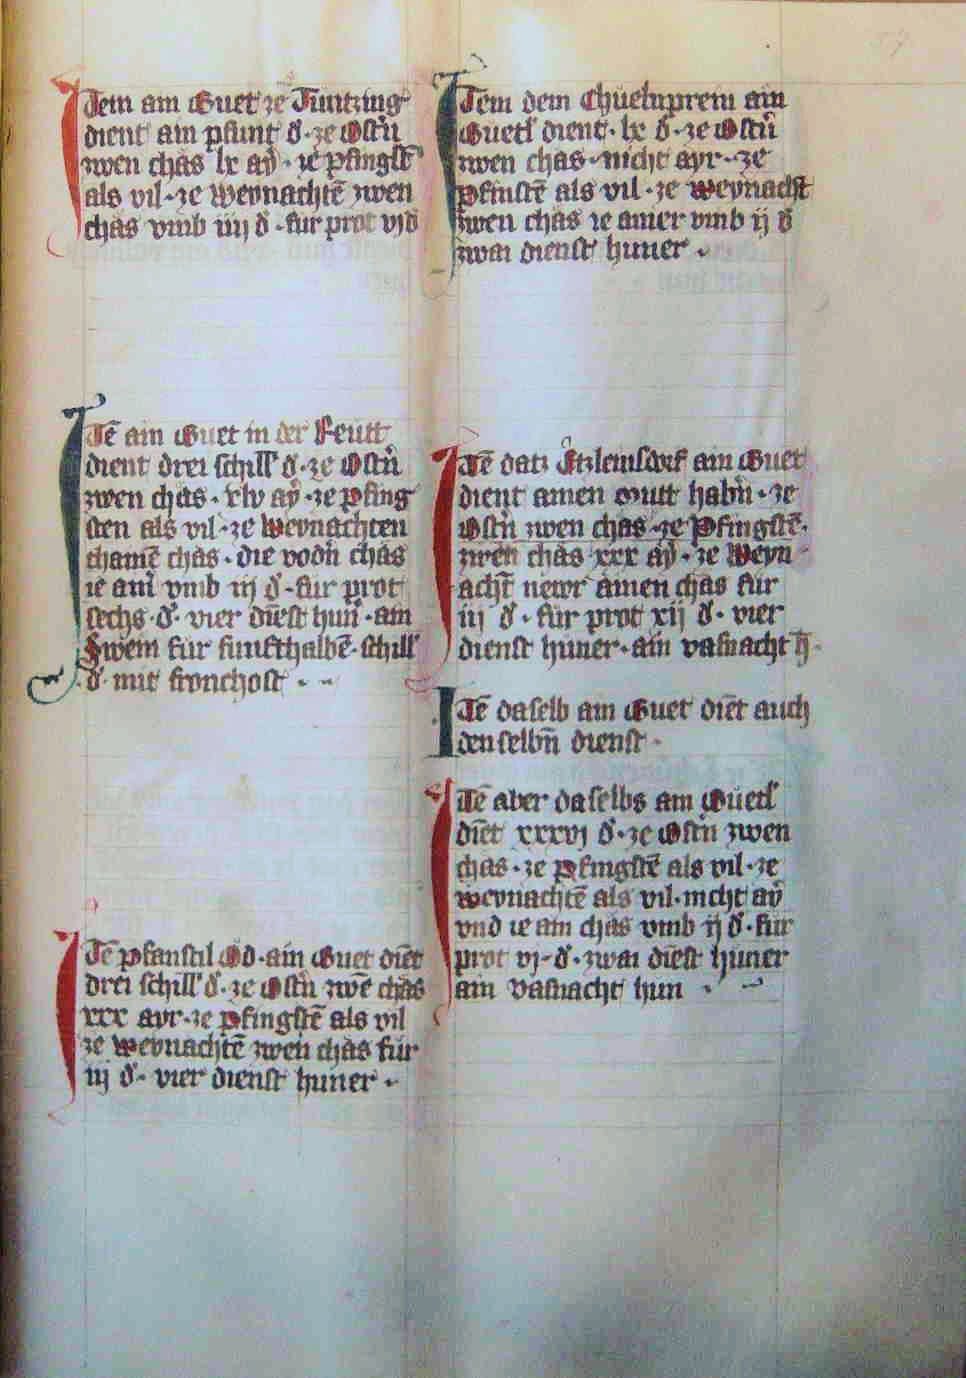 Item am Guet ze Tuntzing
dient ain pfunt d · ze Ostn̄
zwen chas lx aẏ · ze pfingstē
als vil · ze Weynachtē zwen
chas vmb iiij d · fur prot vj d
Itē ain Guet in der Reutt
dient drei schill d · ze Ostn̄
zwen chas · xlv aẏ · ze pfing
sten als vil · ze Weynachten
chainē chas · die vodn̄ chas
ie ain vmb iij d · fur prot
sechs · d · vier diēst hun̄ · ain
Swein fur funfthalbē · schill
d · mit fronchost ·
Itē Pfanstil Öd · ain Guet diēt
drei schill d · ze Ostn̄ zwē chas
xxx ayr · ze pfingstē als vil
ze Weynachtē zwen chas fur
iij d · vier dienst huner ·
Item dem Chuelnprein ain
Guetl dient · lx d · ze Ostn̄
zwen chas · nicht ayr · ze
Pfinstē als vil · ze Weynacht
zwen chas ie ainer vmb ij d
zwai dienst huner ·
Itē datz Etzleinsdorf ain Guet
dient ainen mutt habn̄ · ze
Ostn̄ zwen chas · ze Pfingstē ·
zwen chas xxx aẏ · ze Weyn
acht newr ainen chas fur
iij d · fur prot xij d · vier
dienst huner · ain vasnacht h̄ ·
Itē daselb ain Guet diēt auch
den selbn̄ dienst ·
Itē aber daselbs ain Guetl
diēt xxxvj d · ze Ostn̄ zwen
chas · ze Pfingstē als vil · ze
Weynachtē als vil · nicht aẏ
vnd ie ain chas vmb ij d · fur
prot vj · d · zwai diēst huner
ain vasnacht hun ·